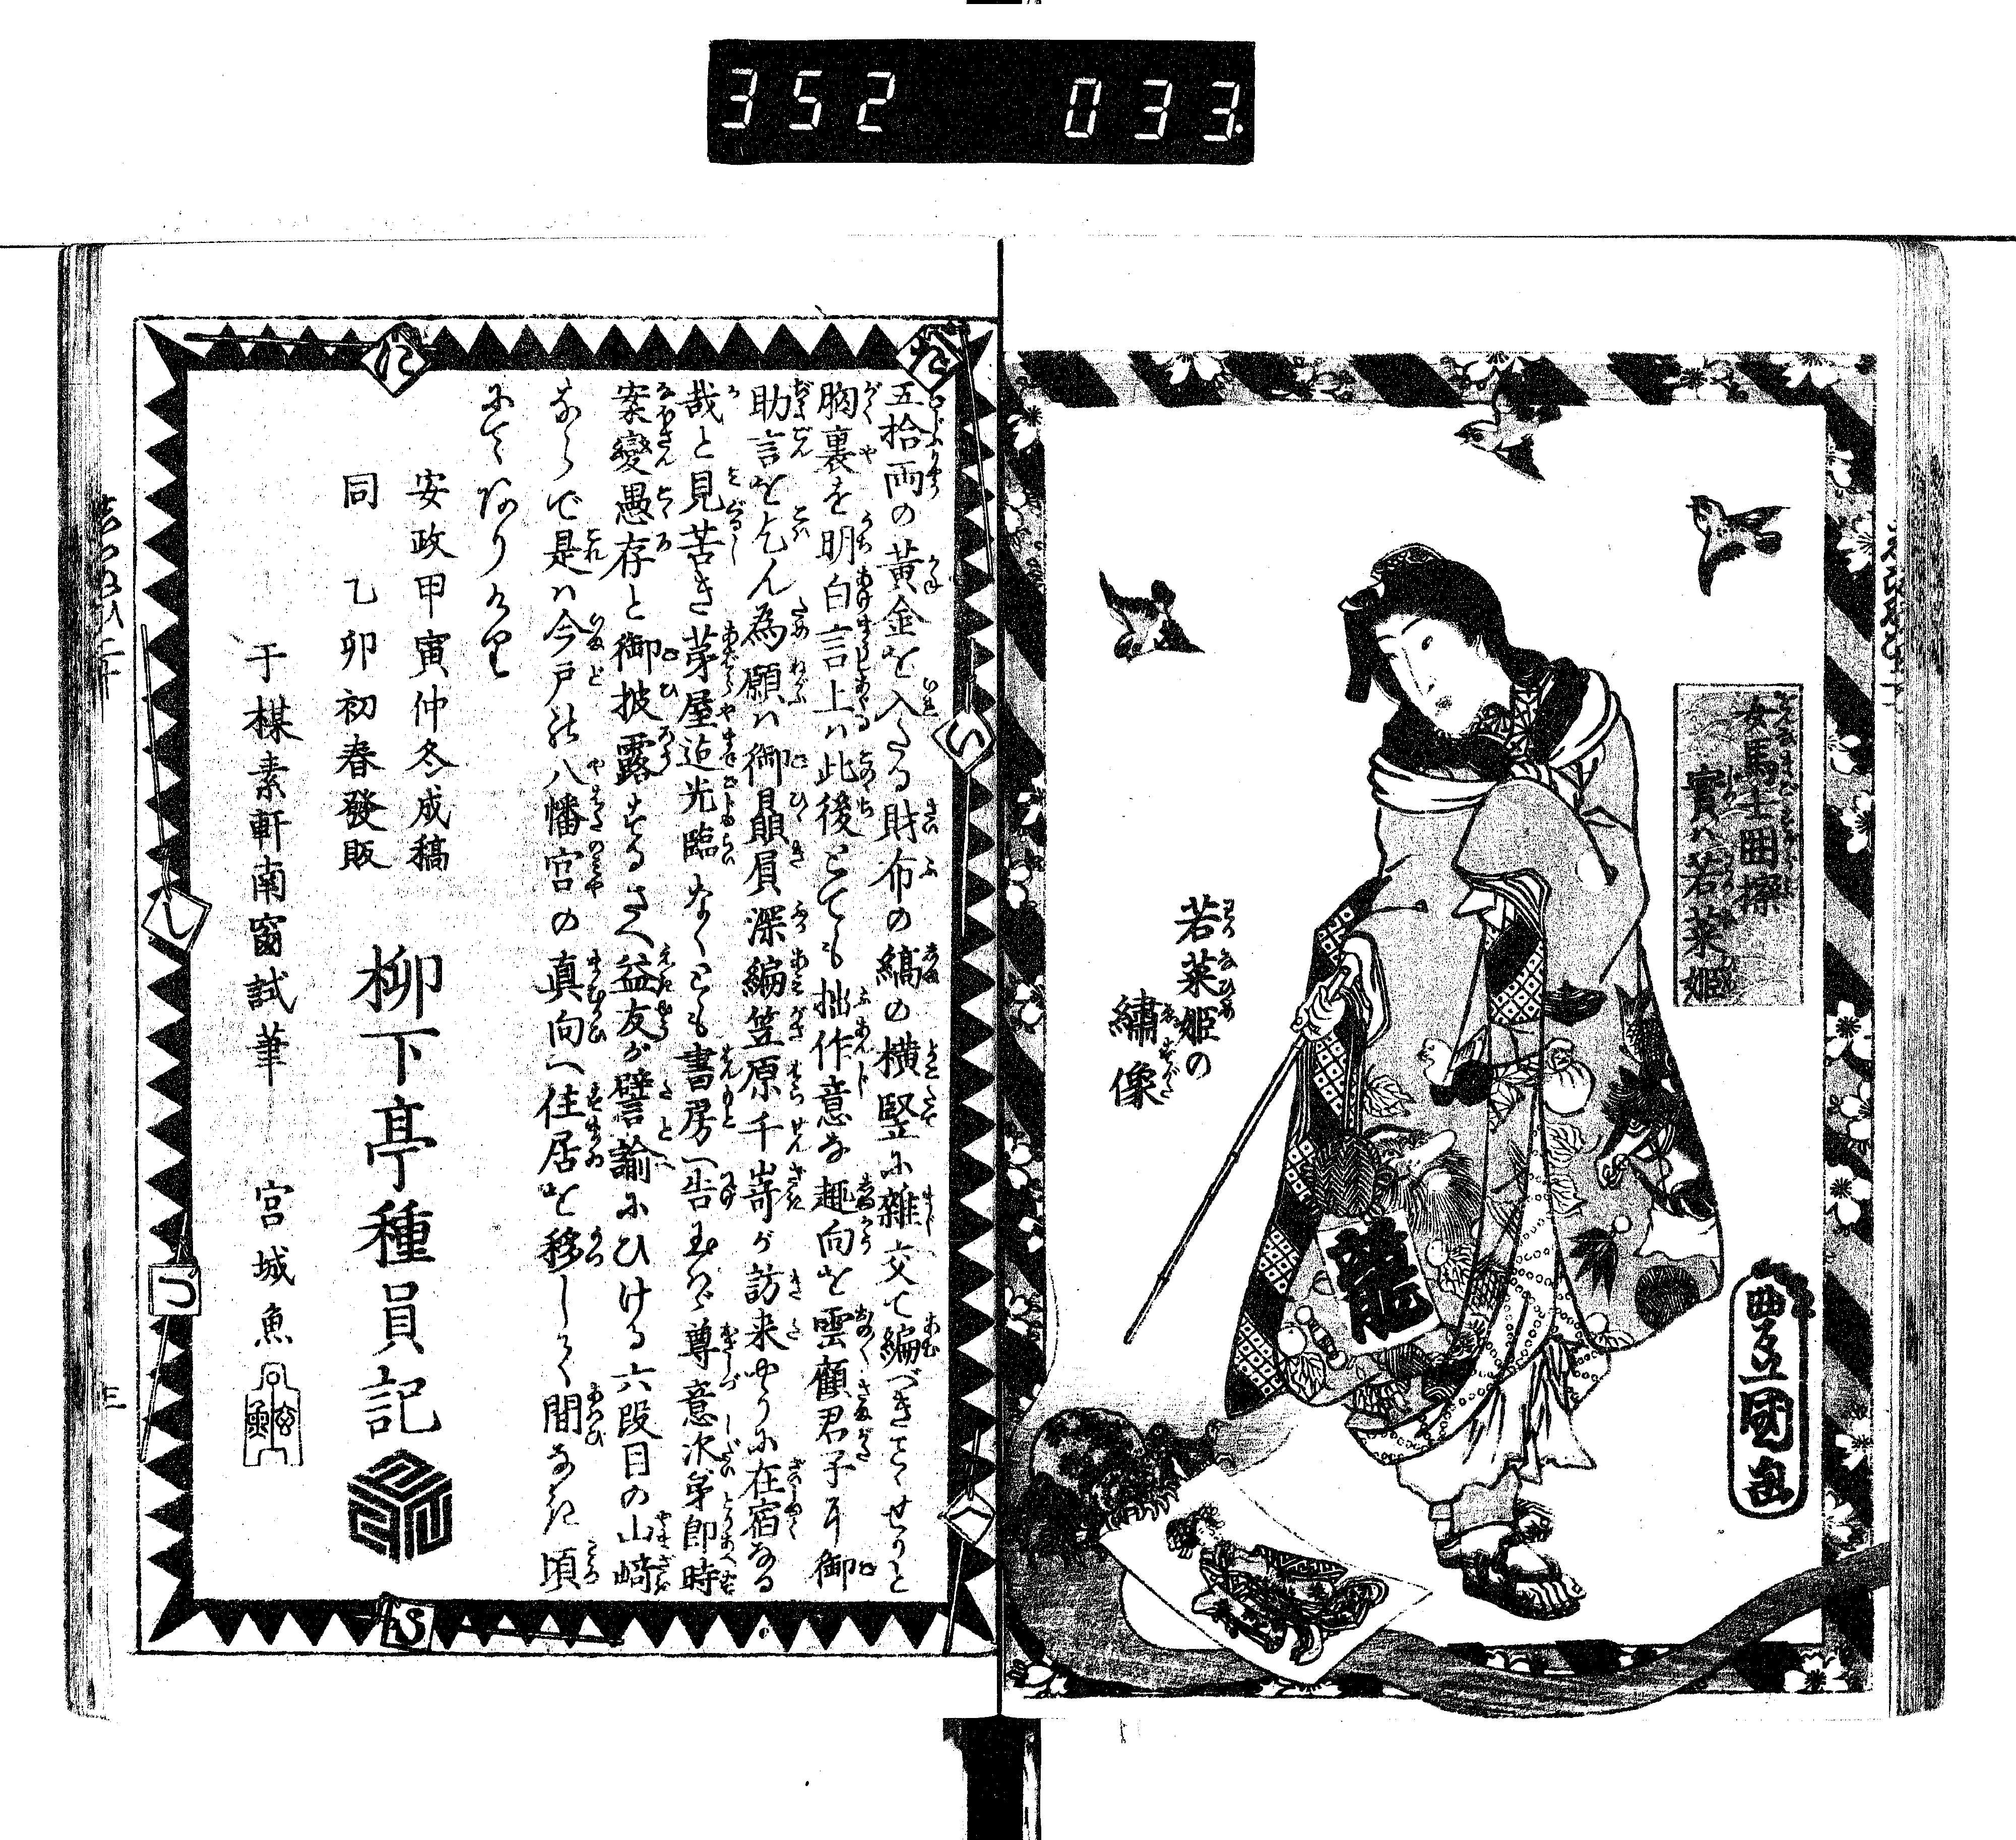 352 033
女馬士囲撰
實ハ若菜姫
若菜姫の
繍像
龍
豊国画
五拾両の黄金を入たる財布の縞の横竪に雑交て編べきことゝせりと
胸裏を明白言上ハ此後とても拙作意な趣向を雲顧君子耳御
助言を乞ん為願ハ御贔屓深編笠原千嵜が訪来やうに在宿なる
哉と見苦き茅屋迄光臨なくとも書房へ告玉はゞ尊意次第即時
案變愚存と御披露するさへ益友が譬諭にひける六段目の山崎
ならで是ハ今戸の八幡宮の真向へ住居を移しゝ間なき頃
にてありける
安政甲寅仲冬成稿
同 乙卯初春發販
柳下亭種員記
于楳素軒南窗試筆 宮城魚
三